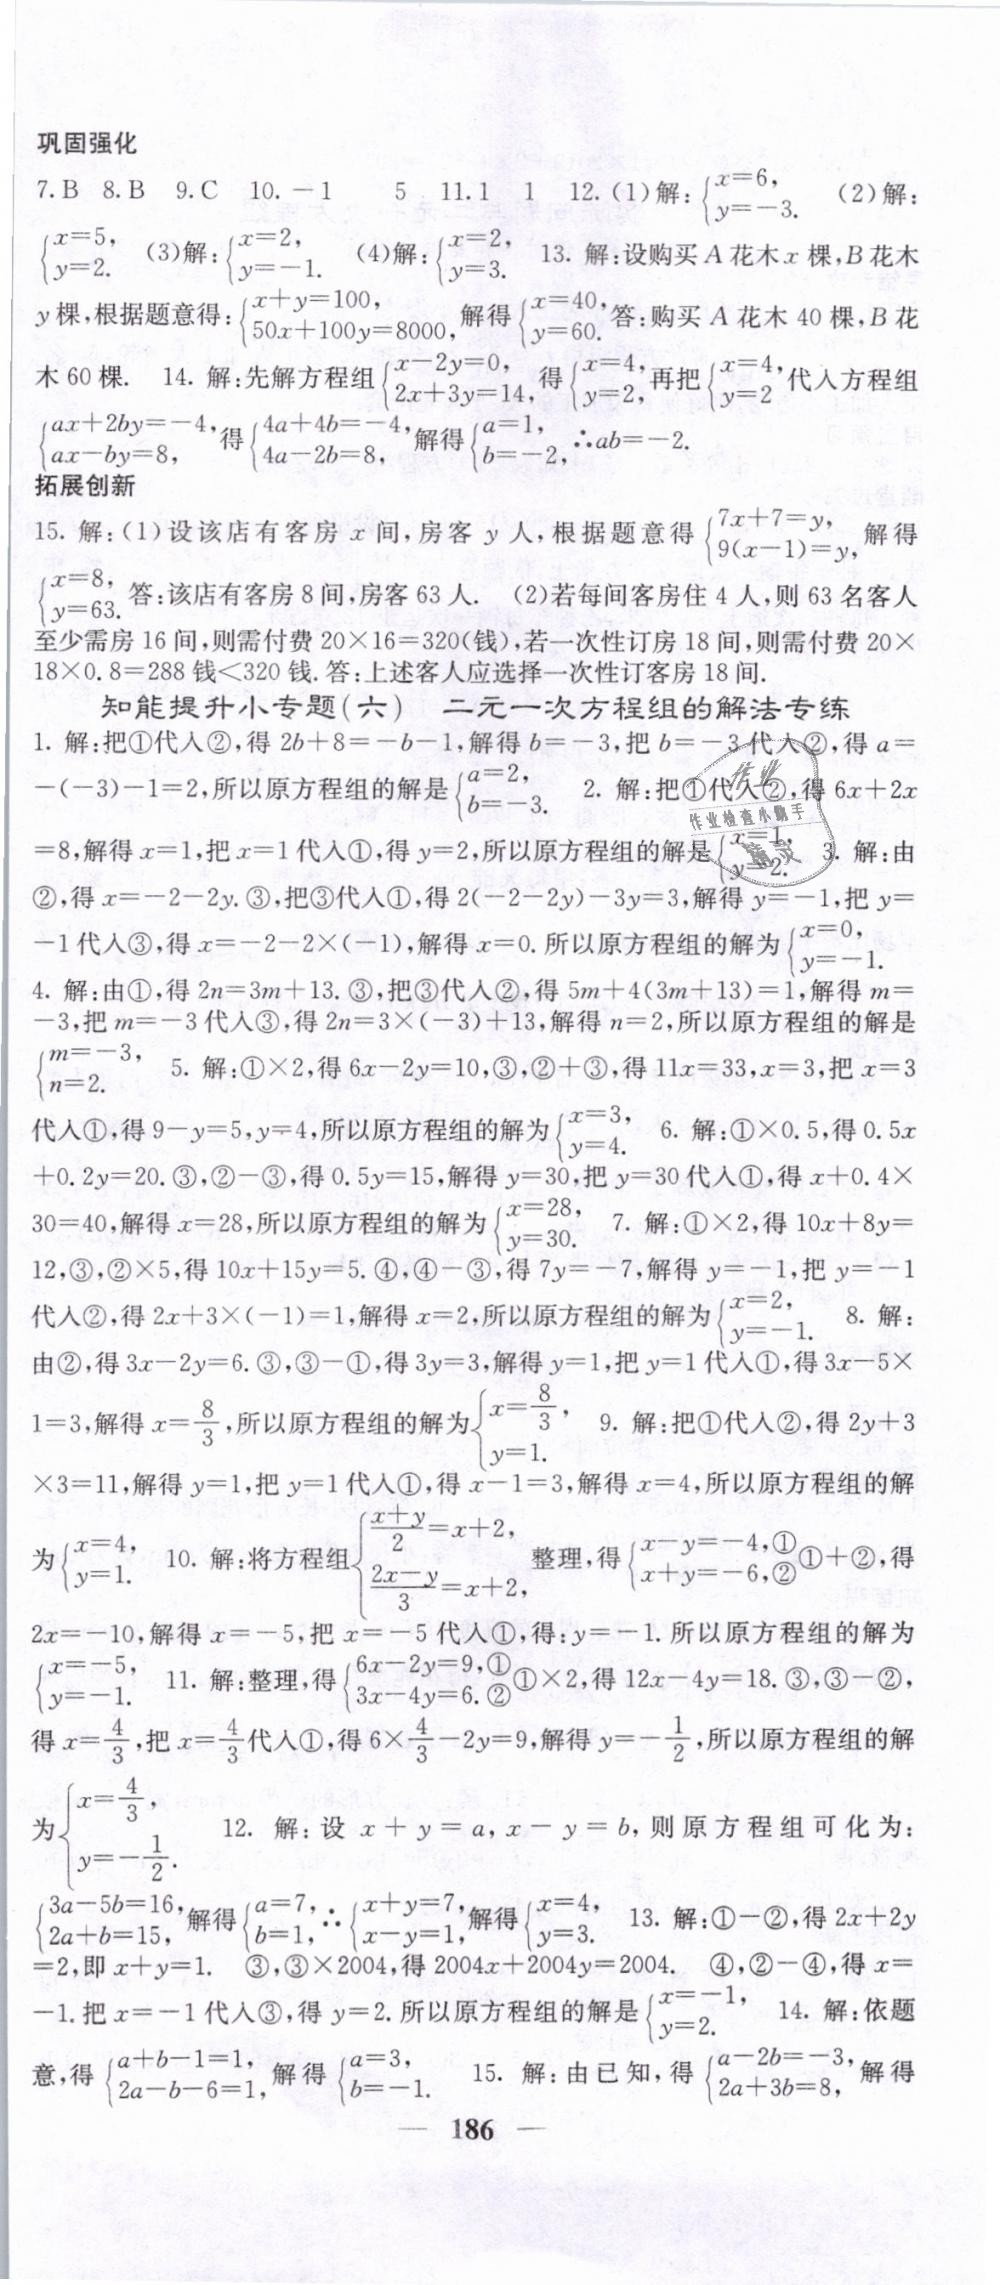 巩固强化
7.B 8.B 9.C 10.-1 5 11.1 1 12.(1)解:{x=6, y=-3. (2)解:
{x=5, y=2. (3)解:{x=2, y=-1. (4)解:{x=2, y=3. 13. 解:设购买A花木x棵,B花木
y棵,根据题意得:{x+y=100, 50x+100y=8000, 解得{x=40, y=60. 答:购买A花木40棵,B花
木60棵. 14. 解:先解方程组{x-2y=0, 2x+3y=14, 得{x=4, y=2, 再把{x=4, y=2 代入方程组
{ax+2by=-4, ax-by=8, 得{4a+4b=-4, 4a-2b=8, 解得{a=1, b=-2, ∴ab=-2.
拓展创新
15. 解:(1)设该店有客房x间,房客y人,根据题意得{7x+7=y, 9(x-1)=y, 解得
{x=8, y=63. 答:该店有客房8间,房客63人. (2)若每间客房住4人,则63名客人
至少需房16间,则需付费20×16=320(钱),若一次性订房18间,则需付费20×
18×0.8=288钱<320钱.答:上述客人应选择一次性订客房18间.
知能提升小专题(六) 二元一次方程组的解法专练
1. 解:把①代入②,得2b+8=-b-1,解得b=-3,把b=-3代入②,得a=
-(-3)-1=2,所以原方程组的解是{a=2, b=-3. 2. 解:把①代入②,得6x+2x
=8,解得x=1,把x=1代入①,得y=2,所以原方程组的解是{x=1, y=2. 3. 解:由
②,得x=-2-2y.③,把③代入①,得2(-2-2y)-3y=3,解得y=-1,把y=
-1代入③,得x=-2-2×(-1),解得x=0.所以原方程组的解为{x=0, y=-1.
4. 解:由①,得2n=3m+13.③,把③代入②,得5m+4(3m+13)=1,解得m=
-3,把m=-3代入③,得2n=3×(-3)+13,解得n=2,所以原方程组的解是
{m=-3, n=2. 5. 解:①×2,得6x-2y=10,③,②+③,得11x=33,x=3,把x=3
代入①,得9-y=5,y=4,所以原方程组的解为{x=3, y=4. 6. 解:①×0.5,得0.5x
+0.2y=20.③,②-③,得0.5y=15,解得y=30,把y=30代入①,得x+0.4×
30=40,解得x=28,所以原方程组的解为{x=28, y=30. 7. 解:①×2,得10x+8y=
12,③,②×5,得10x+15y=5.④,④-③,得7y=-7,解得y=-1,把y=-1
代入②,得2x+3×(-1)=1,解得x=2,所以原方程组的解为{x=2, y=-1. 8. 解:
由②,得3x-2y=6.③,③-①,得3y=3,解得y=1,把y=1代入①,得3x-5×
1=3,解得x=8/3,所以原方程组的解为{x=8/3, y=1. 9. 解:把①代入②,得2y+3
×3=11,解得y=1,把y=1代入①,得x-1=3,解得x=4,所以原方程组的解
为{x=4, y=1. 10. 解:将方程组{(x+y)/2=x+2, (2x-y)/3=x+2, 整理,得{x-y=-4,① x+y=-6,② ①+②,得
2x=-10,解得x=-5,把x=-5代入①,得:y=-1.所以原方程组的解为
{x=-5, y=-1. 11. 解:整理,得{6x-2y=9,① 3x-4y=6.② ①×2,得12x-4y=18.③,③-②,
得x=4/3,把x=4/3代入①,得6×4/3-2y=9,解得y=-1/2,所以原方程组的解
为{x=4/3, y=-1/2. 12. 解:设x+y=a,x-y=b,则原方程组可化为:
{3a-5b=16, 2a+b=15, 解得{a=7, b=1, ∴{x+y=7, x-y=1, 解得{x=4, y=3. 13. 解:①-②,得2x+2y
=2,即x+y=1. ③,③×2004,得2004x+2004y=2004. ④,②-④,得x=
-1.把x=-1代入③,得y=2.所以原方程组的解是{x=-1, y=2. 14. 解:依题
意,得{a+b-1=1, 2a-b-6=1, 解得{a=3, b=-1. 15. 解:由已知,得{a-2b=-3, 2a+3b=8, 解得
— 186 —
作业
作业检查小助手